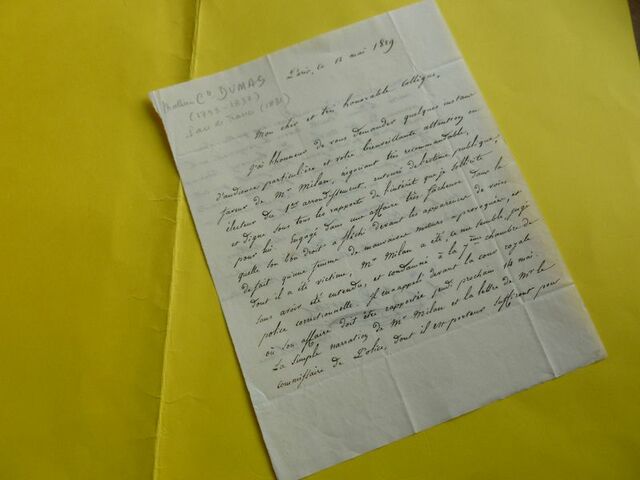 Paris, le 11 mai 1829
Mathieu Cte DUMAS
(1753-1837)
Pair de France (1831)
Mon cher et très honorable collègue,
J'ai l'honneur de vous demander quelques instans
d'audience particulière et votre bienveillante attention en
faveur de Mr Milan, négociant très recommandable,
électeur du 1er arrondissement, entouré de l'estime publique,
et digne sous tous les rapports de l'intérêt que je sollicite
pour lui. Engagé dans une affaire très fâcheuse dans la
quelle son bon droit a fléchi devant les apparences de voies
de fait qu'une femme de mauvaises mœurs a provoquées, et
dont il a été victime, Mr Milan a été, ce me semble, jugé
sans avoir été entendu, et condamné à la 7me chambre de
police correctionnelle. Il en appelle devant la cour royale
où son affaire doit être rapportée jeudi prochain 14 mai.
La simple narration de Mr Milan et la lettre de Mr le
commissaire de Police, dont il est porteur suffiront pour